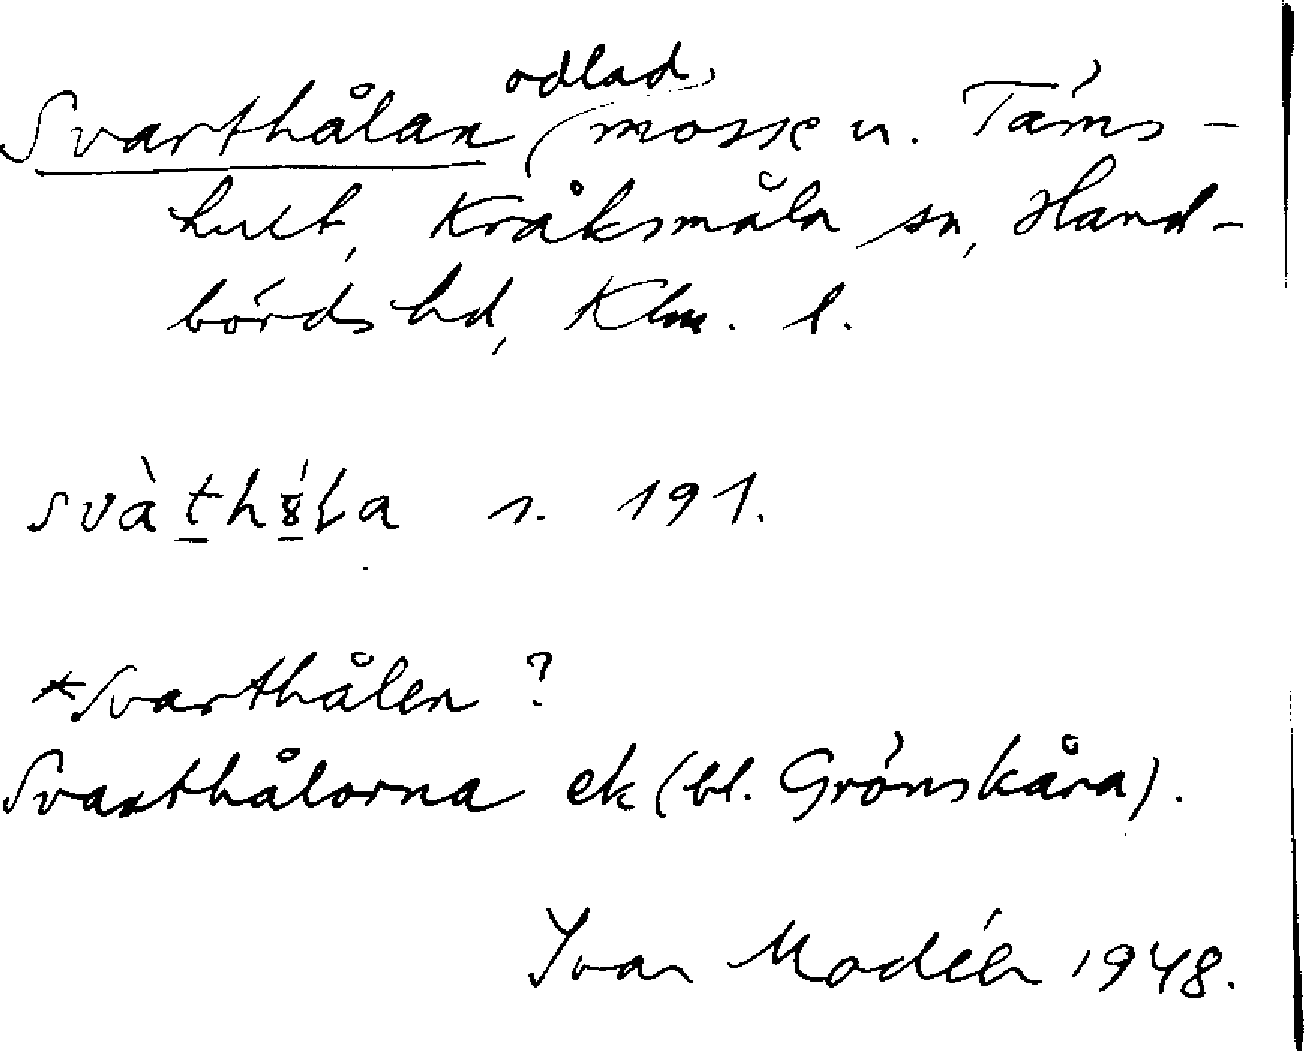 Svarthålan odlad mosse u. Täms-
hult, Kråksmåla sn, Hand-
börds hd, Klm. l.
s. 191.
*Svarthålen ?
Svarthålorna ek (bl. Grönskåra).
Ivar Modéer 1948.